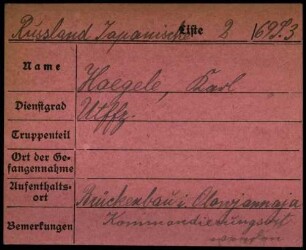 Russland Japanische Liste 2 169S.3
Name Haegele, Karl
Dienstgrad Utffz.
Truppenteil
Ort der Ge-
fangennahme
Aufenthalts-
ort Brückenbau i. Olowjannaja
Kommandierungsort
Bemerkungen